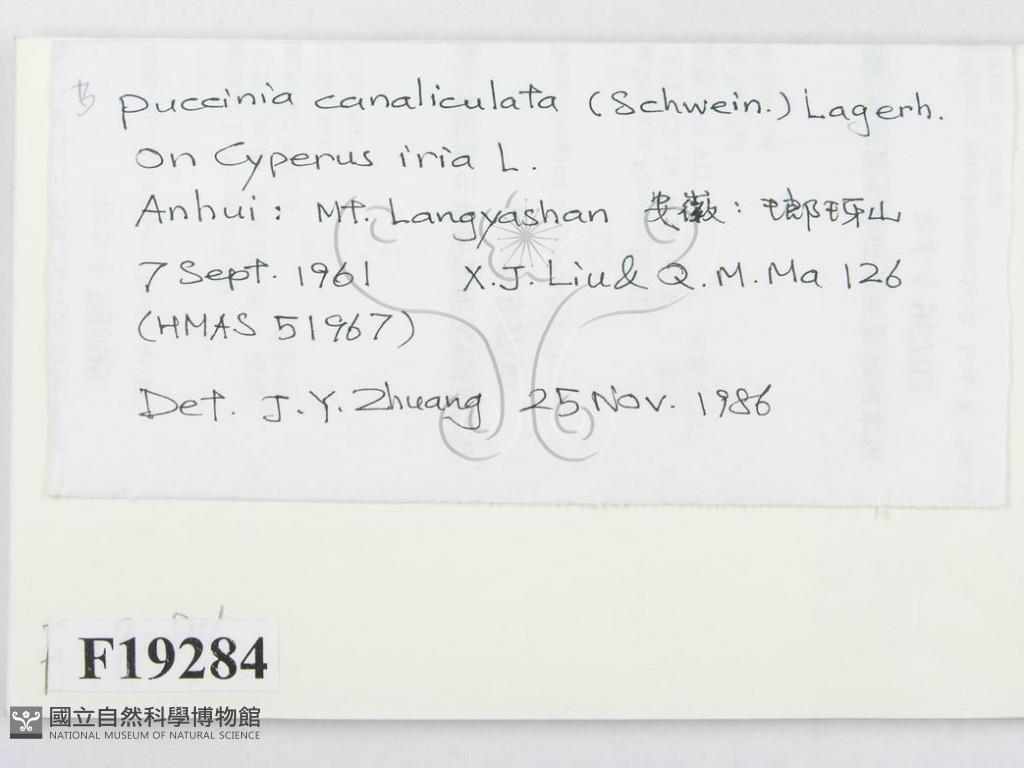 Puccinia canaliculata (Schwein.) Lagerh.
On Cyperus iria L.
Anhui: Mt. Langyashan 安徽: 瑯玡山
7 Sept. 1961 X.J. Liu & Q.M. Ma 126
(HMAS 51967)
Det. J.Y. Zhuang 25 Nov. 1986
F19284
國立自然科學博物館
NATIONAL MUSEUM OF NATURAL SCIENCE